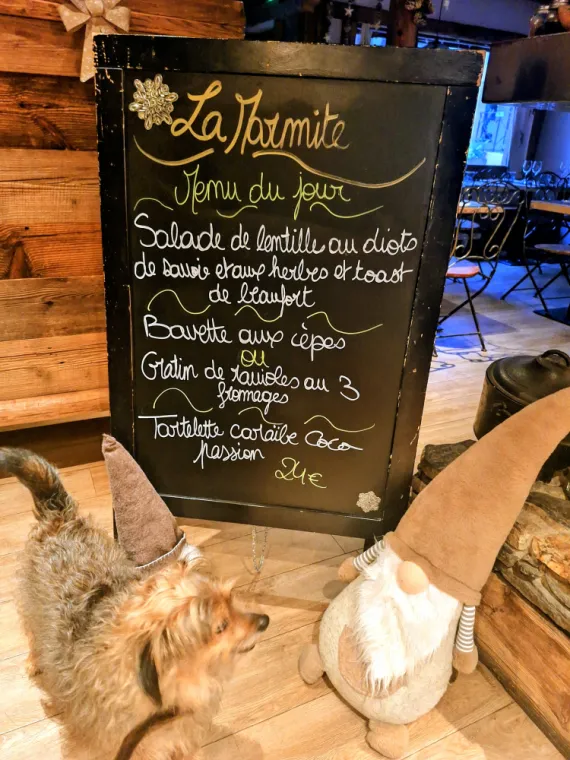 La Marmite
Menu du jour
Salade de lentille au diots
de savoie et aux herbes et toast
de beaufort
Bavette aux cèpes
ou
Gratin de ravioles au 3
fromages
Tartelette caraïbe coco
passion
24€